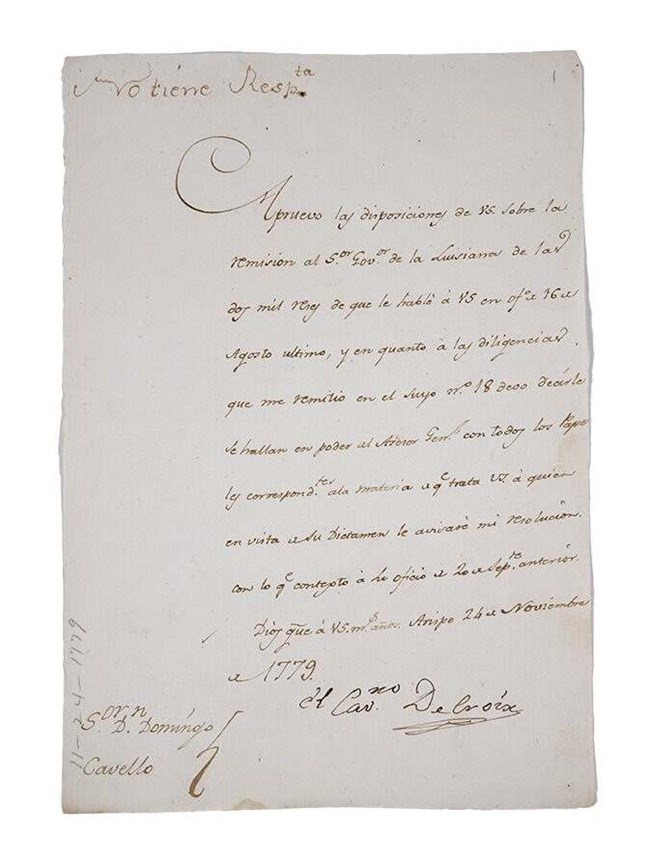 No tiene Resp.ta
1
Apruevo las disposiciones de VS. sobre la
remision al S.or Gov.or de la Luisiana de las
dos mil reses de que le hablé à VS en of.o de 16 de
Agosto ultimo, y en quanto à las diligencias
que me remitio en el suyo n.o 18 devo decirle
se hallan en poder del Asesor Gen.l con todos los Pape
les correspond.tes ala materia de q.e trata VS. à quien
en vista de su Dictamen le avisaré mi resolucion.
con lo q.e contexto à su oficio de 20 de Sep.re anterior.
Dios gue à VS. m.s años. Arispe 24 de Noviembre
de 1779.
el Cav.ro De Croix
S.or D.n Domingo
Cavello
11-24-1779